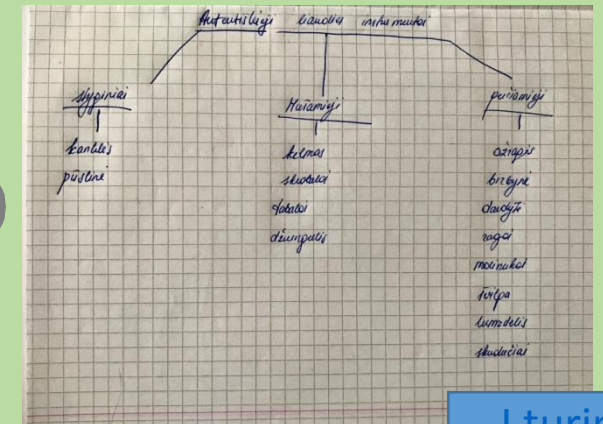 Autentiškieji liaudies instrumentai
Styginiai
kanklės
pūslinė
Mušamieji
kelmas
skrabalai
tabalai
džingulis
pučiamieji
ožragis
birbynė
daudytė
ragai
molinukai
švilpa
lumzdelis
skudučiai
Į turinį